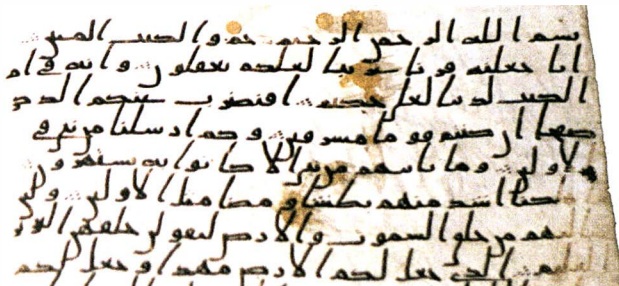 بسم الله الرحمن الرحيم حم والكتب المبين
انا جعلنه قرنا عربيا لعلكم تعقلون وانه في ام
الكتب لدينا لعلي حكيم افنضرب عنكم الذكر
صفحا ان كنتم قوما مسرفين وكم ارسلنا من نبي في
الاولين وما ياتيهم من نبي الا كانوا به يستهزون
اشد منهم بطشا ومضى مثل الاولين ولئن
من خلق السموت والارض ليقولن خلقهن العزيز
العليم الذي جعل لكم الارض مهدا وجعل لكم